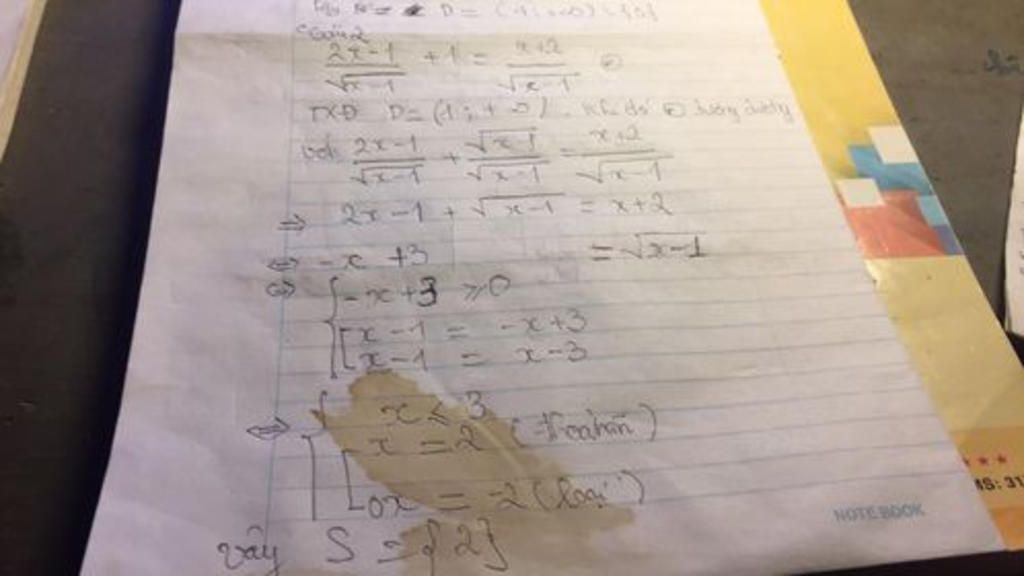 D = (1; +∞) \ {3}
Câu 2
2x-1/√x-1 + 1 = x+2/√x-1
TXĐ D = (1; +∞). Khi đó tương đương
với 2x-1/√x-1 + √x-1/√x-1 = x+2/√x-1
⇒ 2x-1 + √x-1 = x+2
⇔ -x +3 = √x-1
⇔ { -x+3 ≥ 0
[ x-1 = -x+3
[ x-1 = x-3
⇔ { x ≤ 3
[ x = 2 (thoả mãn)
[ 0x = -2 (loại)
Vậy S = {2}
NOTEBOOK
MS: 31